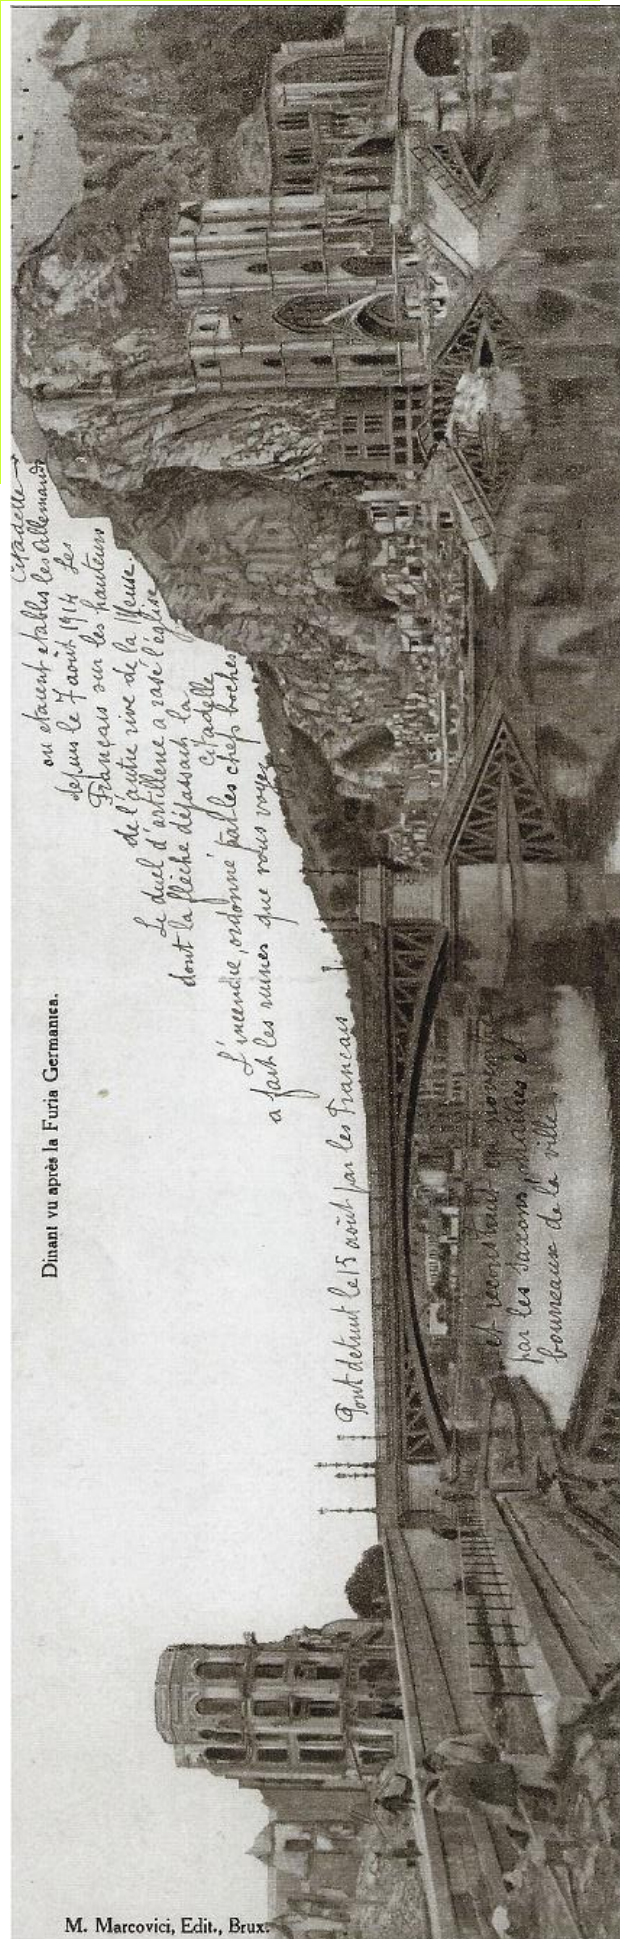 Dinant vu après la Furia Germanica.
Citadelle →
ou étaient établis les Allemands
depuis le 7 août 1914 Les
Français sur les hauteurs
de l'autre rive de la Meuse
Le duel d'artillerie a rasé l'église
dont la flèche dépassait la
citadelle
L'incendie, ordonné par les chefs boches
a fait les ruines que vous voyez
Pont detruit le 15 août par les Francais
et reconstruit en novembre
par les Saxons, et
bourreaux de la ville
M. Marcovici, Edit., Brux.